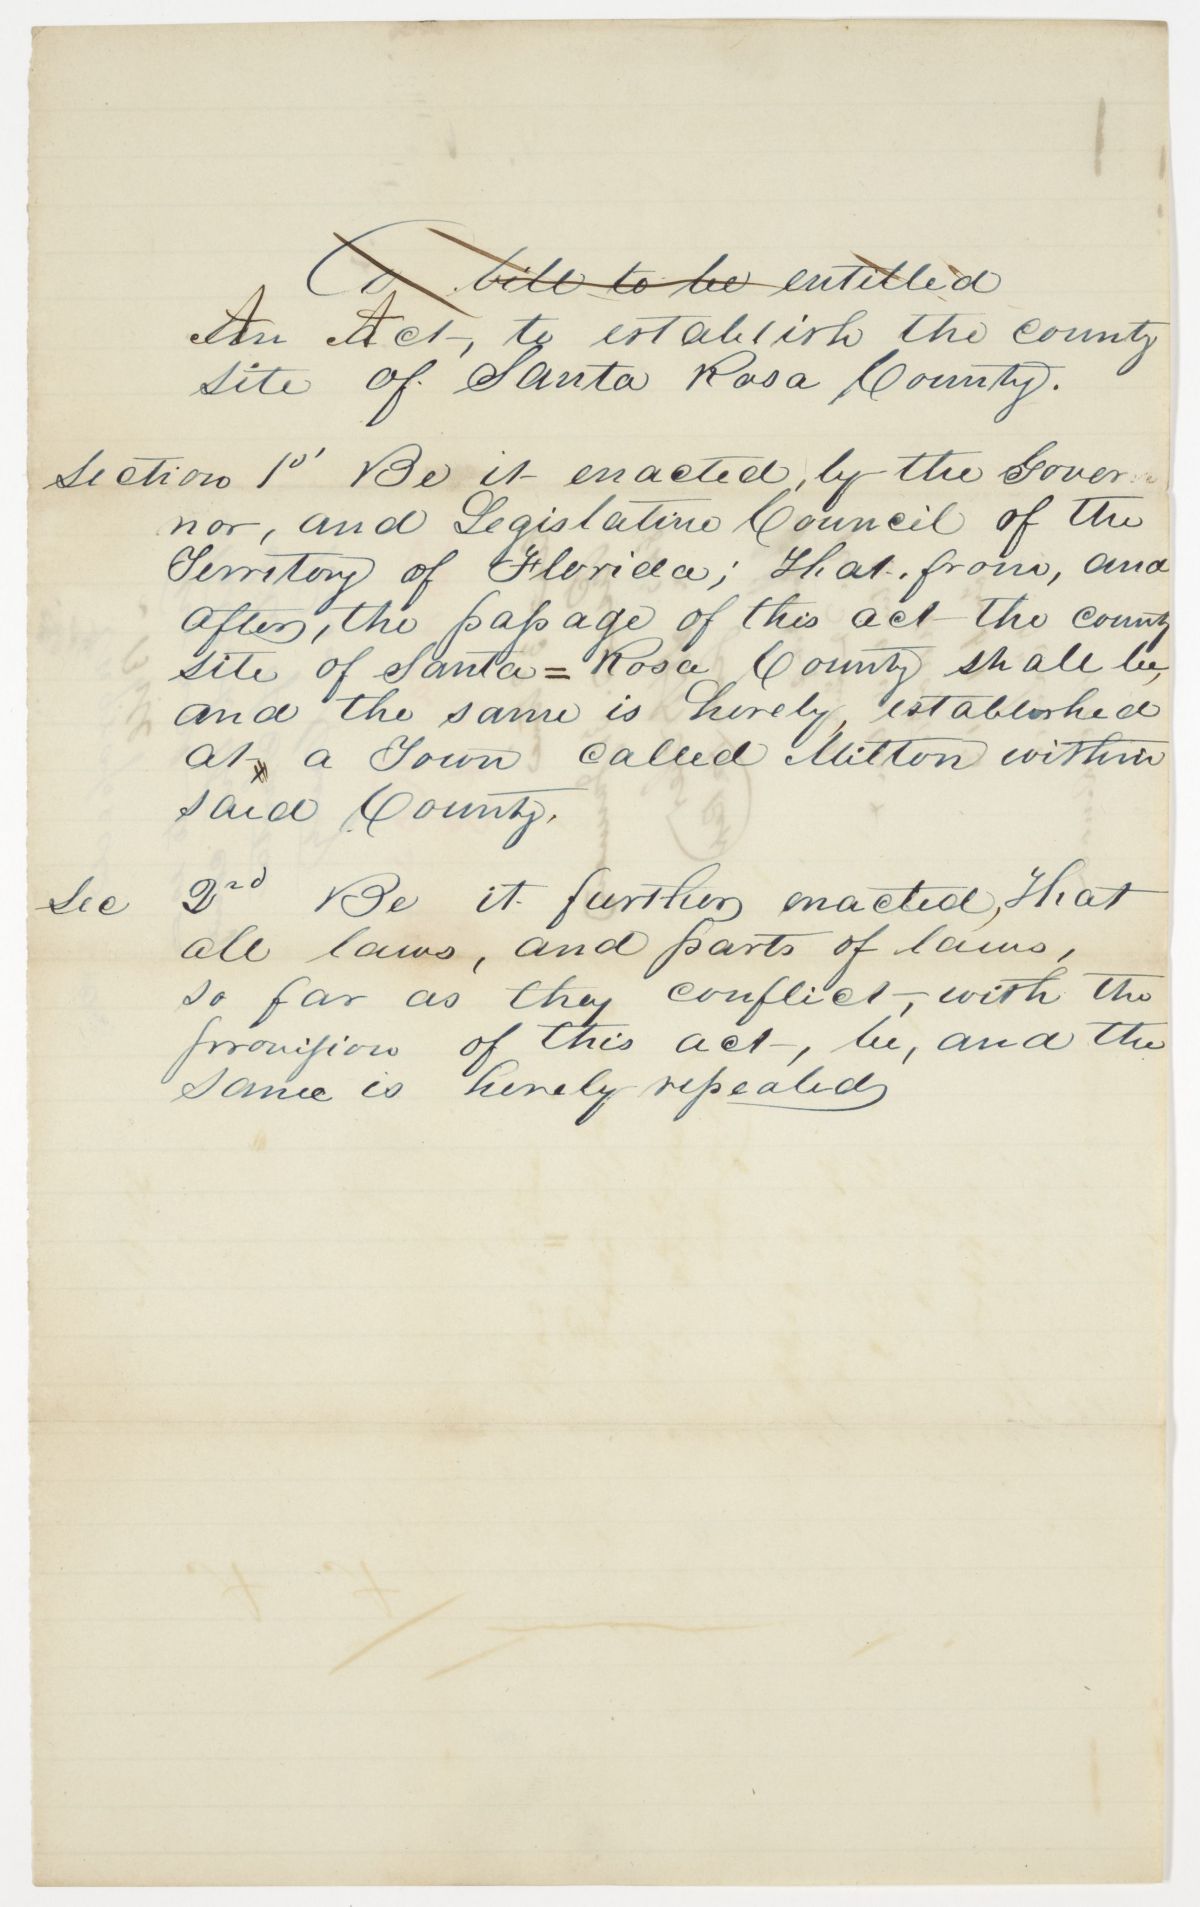 A bill to be entitled
An Act, to establish the county
site of Santa Rosa County.
Section 1st Be it enacted, by the Gover
nor, and Legislative Council of the
Territory of Florida; That from, and
after, the passage of this act the county
site of Santa=Rosa County shall be,
and the same is hereby, established
at a Town called Milton within
said County.
Sec 2nd Be it further enacted, That
all laws, and parts of laws,
so far as they conflict, with the
provision of this act, be, and the
same is hereby repealed